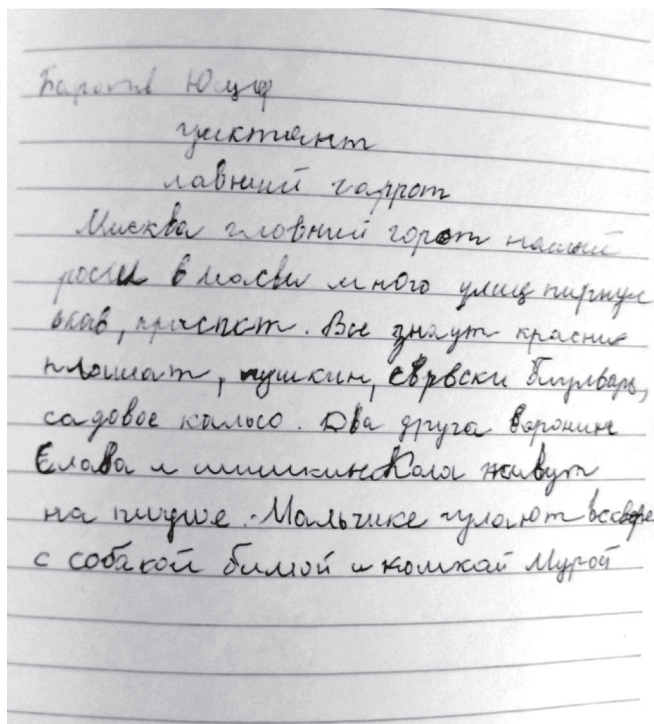 Юсуф
диктант
лавний гаррот
Москва гловний горот наший
росии в масви много улиц пириул
окав, праспкт. Все знаут красни
плошат, пушкин, сврвски Биулварь,
садовое кальсо. Два друга Воронин
Слава и шишкин Кола живут
на Мальчике гулают в сквере
с собакой бимой и комкай Мурой